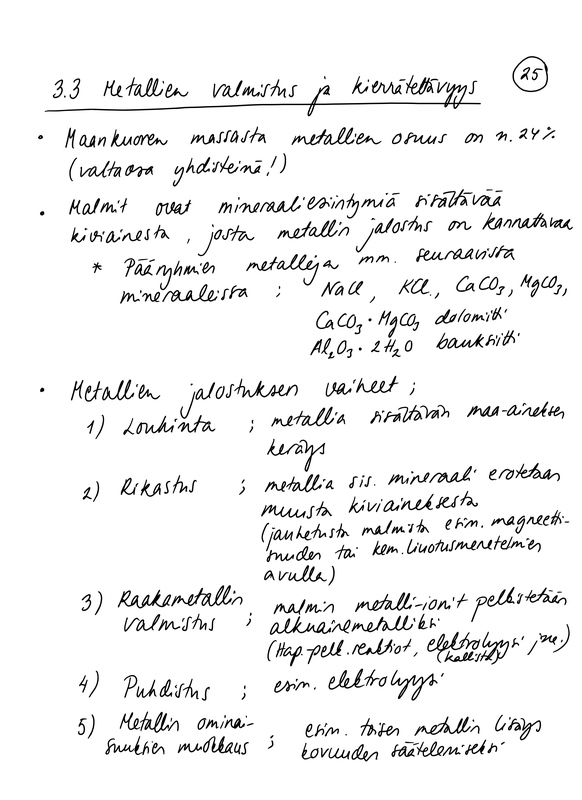 25
3.3 Metallien valmistus ja kierrätettävyys
• Maankuoren massasta metallien osuus on n. 24%
(valtaosa yhdisteinä!)
• Malmit ovat mineraaliesiintymiä sisältävää
kiviainesta, josta metallin jalostus on kannattavaa
* Pääryhmien metalleja mm. seuraavista
mineraaleista ; NaCl, KCl, CaCO₃, MgCO₃,
CaCO₃ · MgCO₃ dolomiitti
Al₂O₃ · 2H₂O bauksiitti
• Metallien jalostuksen vaiheet ;
1) Louhinta ; metallia sisältävän maa-aineksen
keräys
2) Rikastus ; metallia sis. mineraali erotetaan
muusta kiviaineksesta
(jauhetusta malmista esim. magneetti-
suuden tai kem. liuotusmenetelmien
avulla)
3) Raakametallin ; malmin metalli-ionit pelkistetään
valmistus alkuainemetalliksi
(Hap.-pelk. reaktiot, elektrolyysi jne.)
(kallista)
4) Puhdistus ; esim. elektrolyysi
5) Metallin ominai- ; esim. toisen metallin lisäys
suuksien muokkaus kovuuden säätelemiseksi